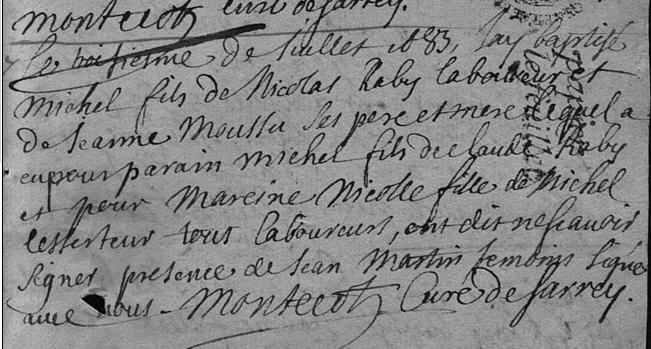 montecot curé de sarrey.
Le huitiesme de Juillet 1683, Jay baptisé
michel fils de Nicolas Raby laboureur et
de Jeanne Moussu ses pere et mere lequel a
eu pour parain michel fils de claude Raby
et pour Mareine Nicolle fille de Michel
lesserteur tout laboureurs, ont dit ne scavoir
signer presence de Jean Martin temoins signé
avec nous - Montecot Curé de Sarrey.